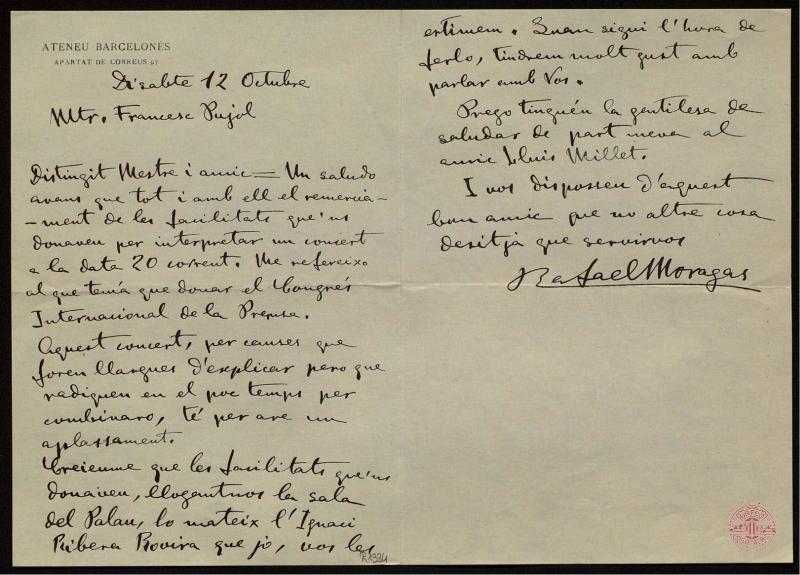 ATENEU BARCELONÈS
APARTAT DE CORREUS 97
Disabte 12 Octubre
Mtr. Francesc Pujol
Distingit Mestre i amic = Un saludo
avans que tot i amb ell el remercia-
-ment de les facilitats que'ns
donaveu per interpretar un concert
a la data 20 corrent. Me refereixo
al que tenía que donar el Congrés
Internacional de la Premsa.
Aquest concert, per causes que
foren llargues d'explicar pero que
radiquen en el poc temps per
combinaro, té per are un
aplassament.
Creieume que les facilitats que'ns
donaveu, llogantnos la sala
del Palau, lo mateix l'Ignaci
Ribera Rovira que jo, vos les
estimem. Quan sigui l'hora de
ferlo, tindrem molt gust amb
parlar amb Vos.
Prego tinguén la gentilesa de
saludar de part meva al
amic Lluis Millet.
I vos disposeu d'aquest
bon amic que no altre cosa
desitjà que servirvos
Rafael Moragas